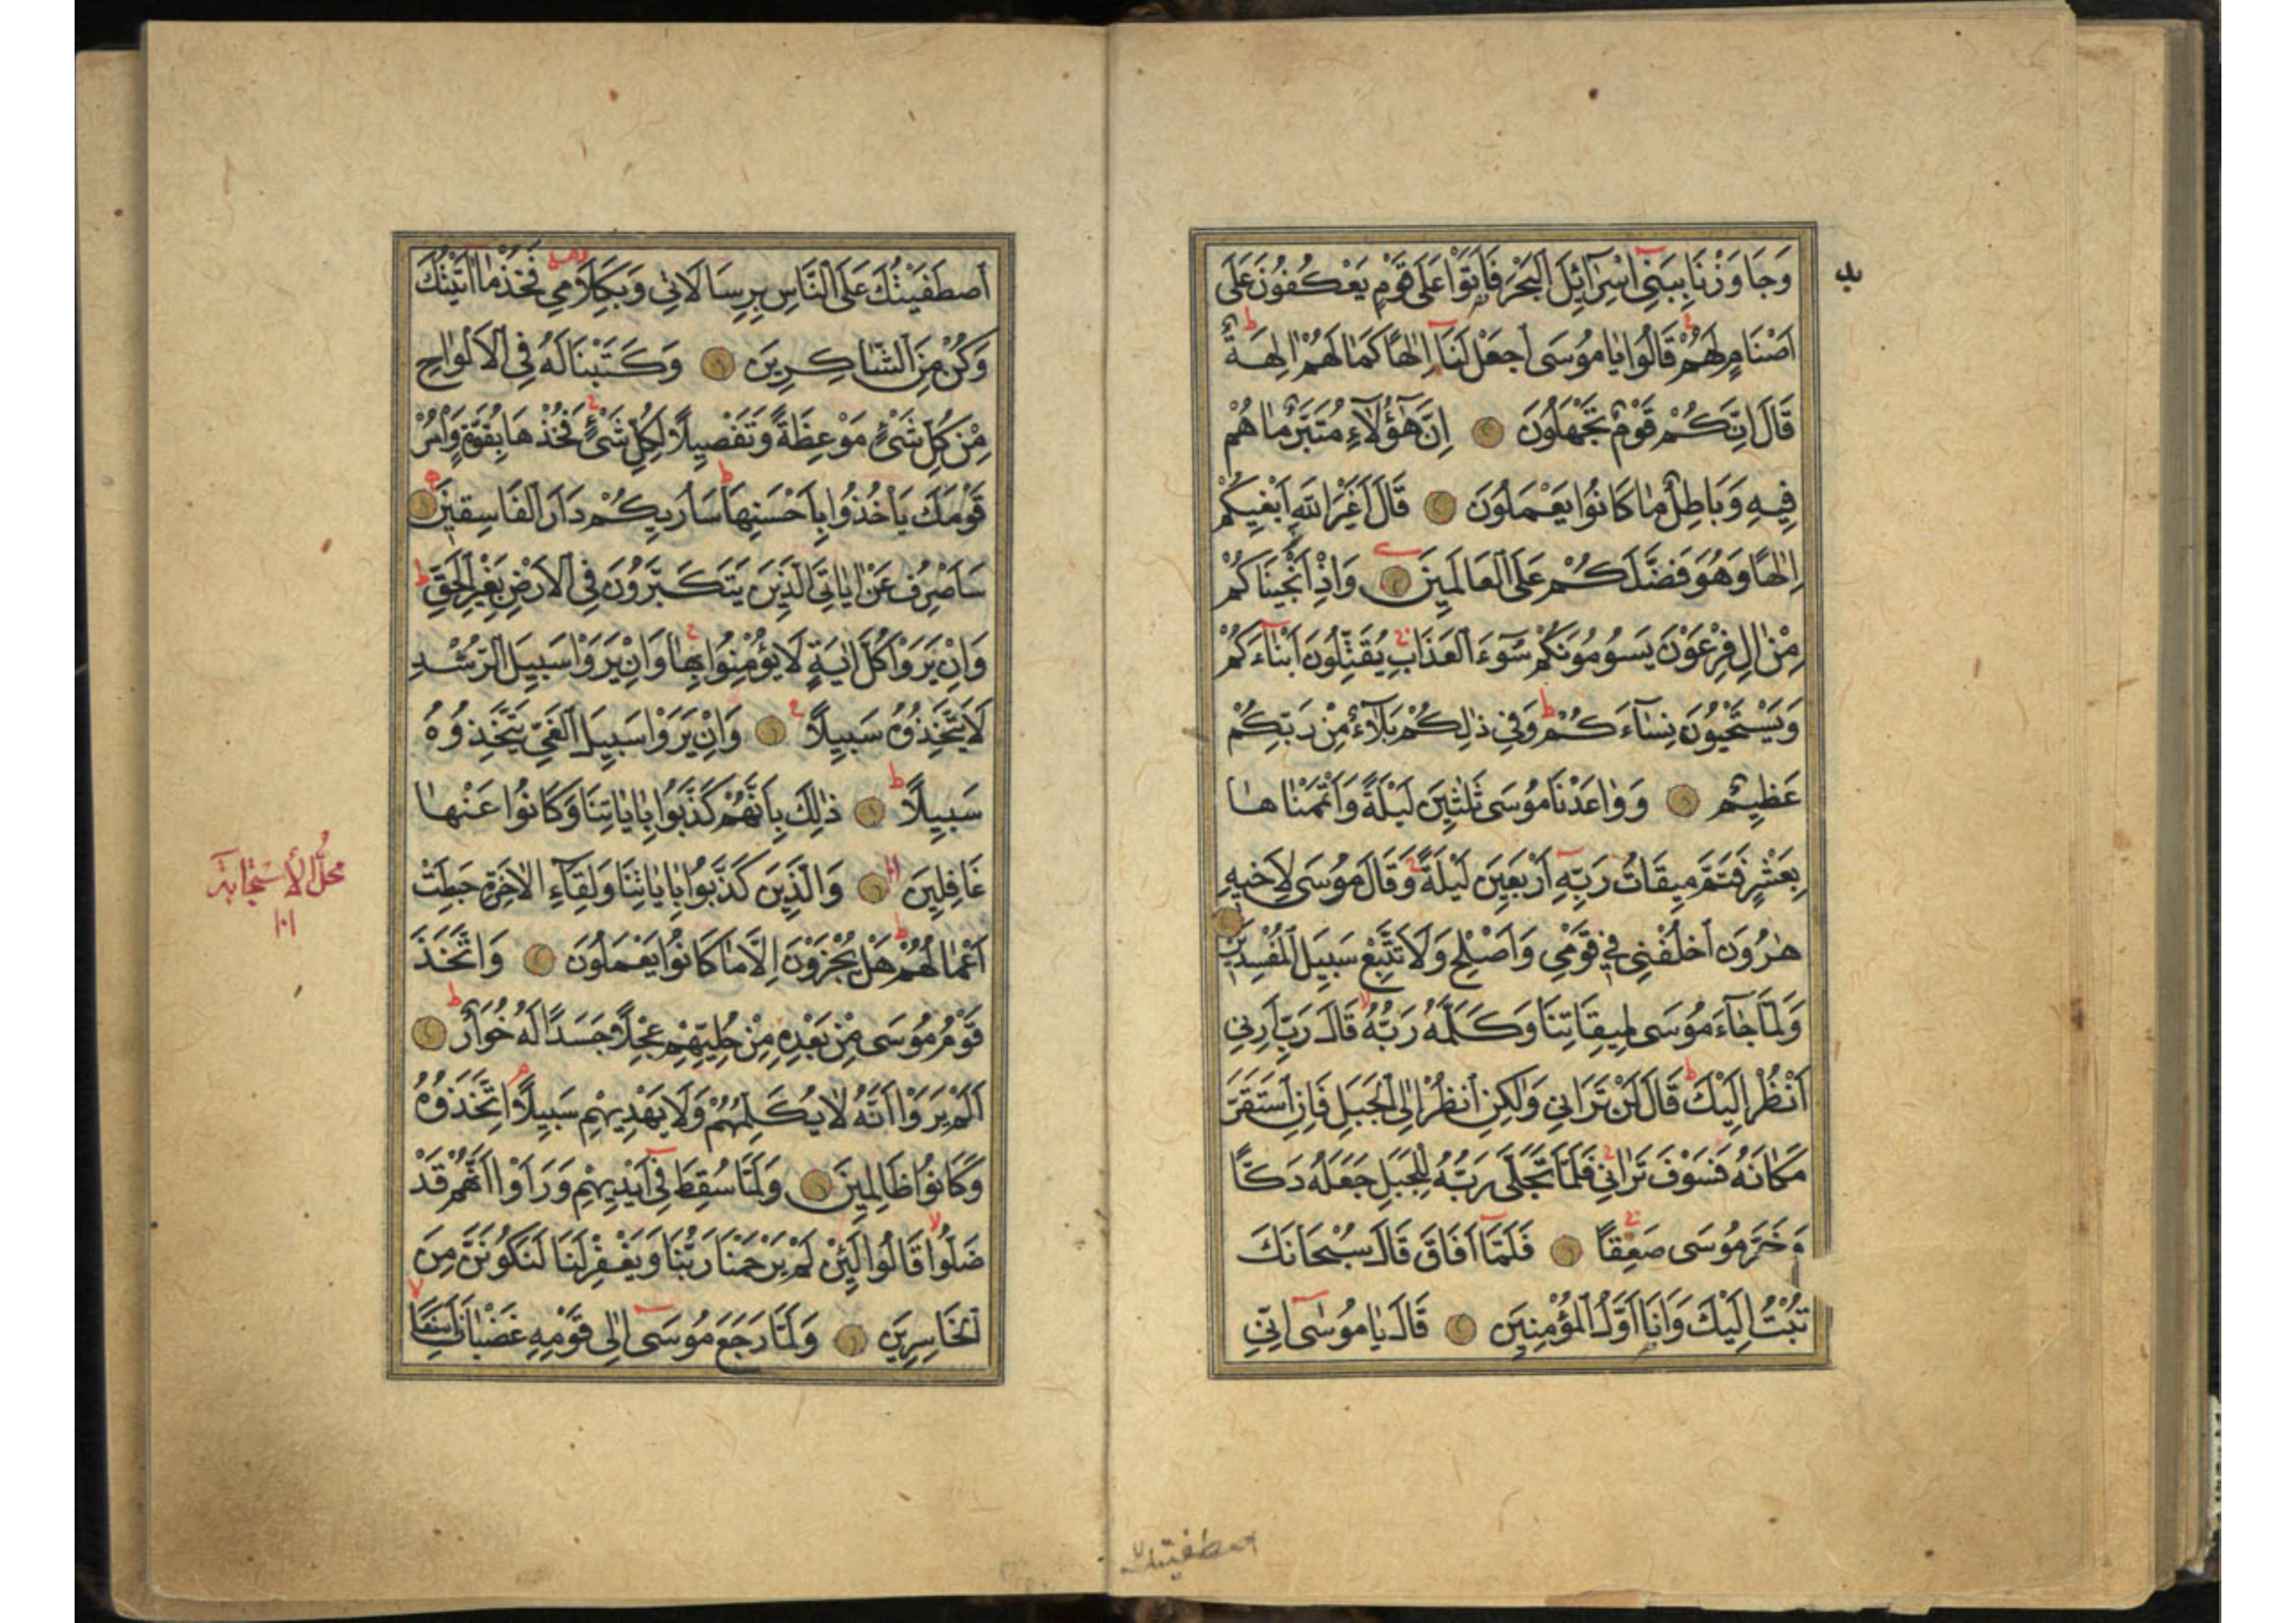 وَجَاوَزْنَا بِبَنِي اِسْرَآئِلَ الْبَحْرَ فَاَتَوْا عَلٰى قَوْمٍ يَعْكُفُونَ عَلٰى
اَصْنَامٍ لَهُمْ قَالُوا يَا مُوسَى اجْعَلْ لَنَا اِلٰهًا كَمَا لَهُمْ اٰلِهَةٌ
قَالَ اِنَّكُمْ قَوْمٌ تَجْهَلُونَ اِنَّ هٰٓؤُلَآءِ مُتَبَّرٌ مَا هُمْ
فِيهِ وَبَاطِلٌ مَا كَانُوا يَعْمَلُونَ قَالَ اَغَيْرَ اللّٰهِ اَبْغِيكُمْ
اِلٰهًا وَهُوَ فَضَّلَكُمْ عَلَى الْعَالَمِينَ وَاِذْ اَنْجَيْنَاكُمْ
مِنْ اٰلِ فِرْعَوْنَ يَسُومُونَكُمْ سُوٓءَ الْعَذَابِ يُقَتِّلُونَ اَبْنَآءَكُمْ
وَيَسْتَحْيُونَ نِسَآءَكُمْ وَفِي ذٰلِكُمْ بَلَآءٌ مِنْ رَبِّكُمْ
عَظِيمٌ وَوٰاعَدْنَا مُوسَى ثَلٰثِينَ لَيْلَةً وَاَتْمَمْنَاهَا
بِعَشْرٍ فَتَمَّ مِيقَاتُ رَبِّهِ اَرْبَعِينَ لَيْلَةً وَقَالَ مُوسَى لِاَخِيهِ
هٰرُونَ اخْلُفْنِي فِي قَوْمِي وَاَصْلِحْ وَلَا تَتَّبِعْ سَبِيلَ الْمُفْسِدِينَ
وَلَمَّا جَآءَ مُوسَى لِمِيقَاتِنَا وَكَلَّمَهُ رَبُّهُ قَالَ رَبِّ اَرِنِي
اَنْظُرْ اِلَيْكَ قَالَ لَنْ تَرَانِي وَلٰكِنِ انْظُرْ اِلَى الْجَبَلِ فَاِنِ اسْتَقَرَّ
مَكَانَهُ فَسَوْفَ تَرَانِي فَلَمَّا تَجَلّٰى رَبُّهُ لِلْجَبَلِ جَعَلَهُ دَكًّا
وَخَرَّ مُوسَى صَعِقًا فَلَمَّآ اَفَاقَ قَالَ سُبْحَانَكَ
تُبْتُ اِلَيْكَ وَاَنَا اَوَّلُ الْمُؤْمِنِينَ قَالَ يَا مُوسٰى اِنِّي
اصطفيتك
اصْطَفَيْتُكَ عَلَى النَّاسِ بِرِسَالَاتِي وَبِكَلَامِي فَخُذْ مَا اٰتَيْتُكَ
وَكُنْ مِنَ الشَّاكِرِينَ وَكَتَبْنَا لَهُ فِي الْاَلْوَاحِ
مِنْ كُلِّ شَيْءٍ مَوْعِظَةً وَتَفْصِيلًا لِكُلِّ شَيْءٍ فَخُذْهَا بِقُوَّةٍ وَاْمُرْ
قَوْمَكَ يَاْخُذُوا بِاَحْسَنِهَا سَاُرِيكُمْ دَارَ الْفَاسِقِينَ
سَاَصْرِفُ عَنْ اٰيَاتِيَ الَّذِينَ يَتَكَبَّرُونَ فِي الْاَرْضِ بِغَيْرِ الْحَقِّ
وَاِنْ يَرَوْا كُلَّ اٰيَةٍ لَا يُؤْمِنُوا بِهَا وَاِنْ يَرَوْا سَبِيلَ الرُّشْدِ
لَا يَتَّخِذُوهُ سَبِيلًا وَاِنْ يَرَوْا سَبِيلَ الْغَيِّ يَتَّخِذُوهُ
سَبِيلًا ذٰلِكَ بِاَنَّهُمْ كَذَّبُوا بِاٰيَاتِنَا وَكَانُوا عَنْهَا
غَافِلِينَ وَالَّذِينَ كَذَّبُوا بِاٰيَاتِنَا وَلِقَآءِ الْاٰخِرَةِ حَبِطَتْ
اَعْمَالُهُمْ هَلْ يُجْزَوْنَ اِلَّا مَا كَانُوا يَعْمَلُونَ وَاتَّخَذَ
قَوْمُ مُوسَى مِنْ بَعْدِهِ مِنْ حُلِيِّهِمْ عِجْلًا جَسَدًا لَهُ خُوَارٌ
اَلَمْ يَرَوْا اَنَّهُ لَا يُكَلِّمُهُمْ وَلَا يَهْدِيهِمْ سَبِيلًا اِتَّخَذُوهُ
وَكَانُوا ظَالِمِينَ وَلَمَّا سُقِطَ فِي اَيْدِيهِمْ وَرَاَوْا اَنَّهُمْ قَدْ
ضَلُّوا قَالُوا لَئِنْ لَمْ يَرْحَمْنَا رَبُّنَا وَيَغْفِرْ لَنَا لَنَكُونَنَّ مِنَ
الْخَاسِرِينَ وَلَمَّا رَجَعَ مُوسَى اِلٰى قَوْمِهِ غَضْبَانَ اَسِفًا
محلّ الأستجابة